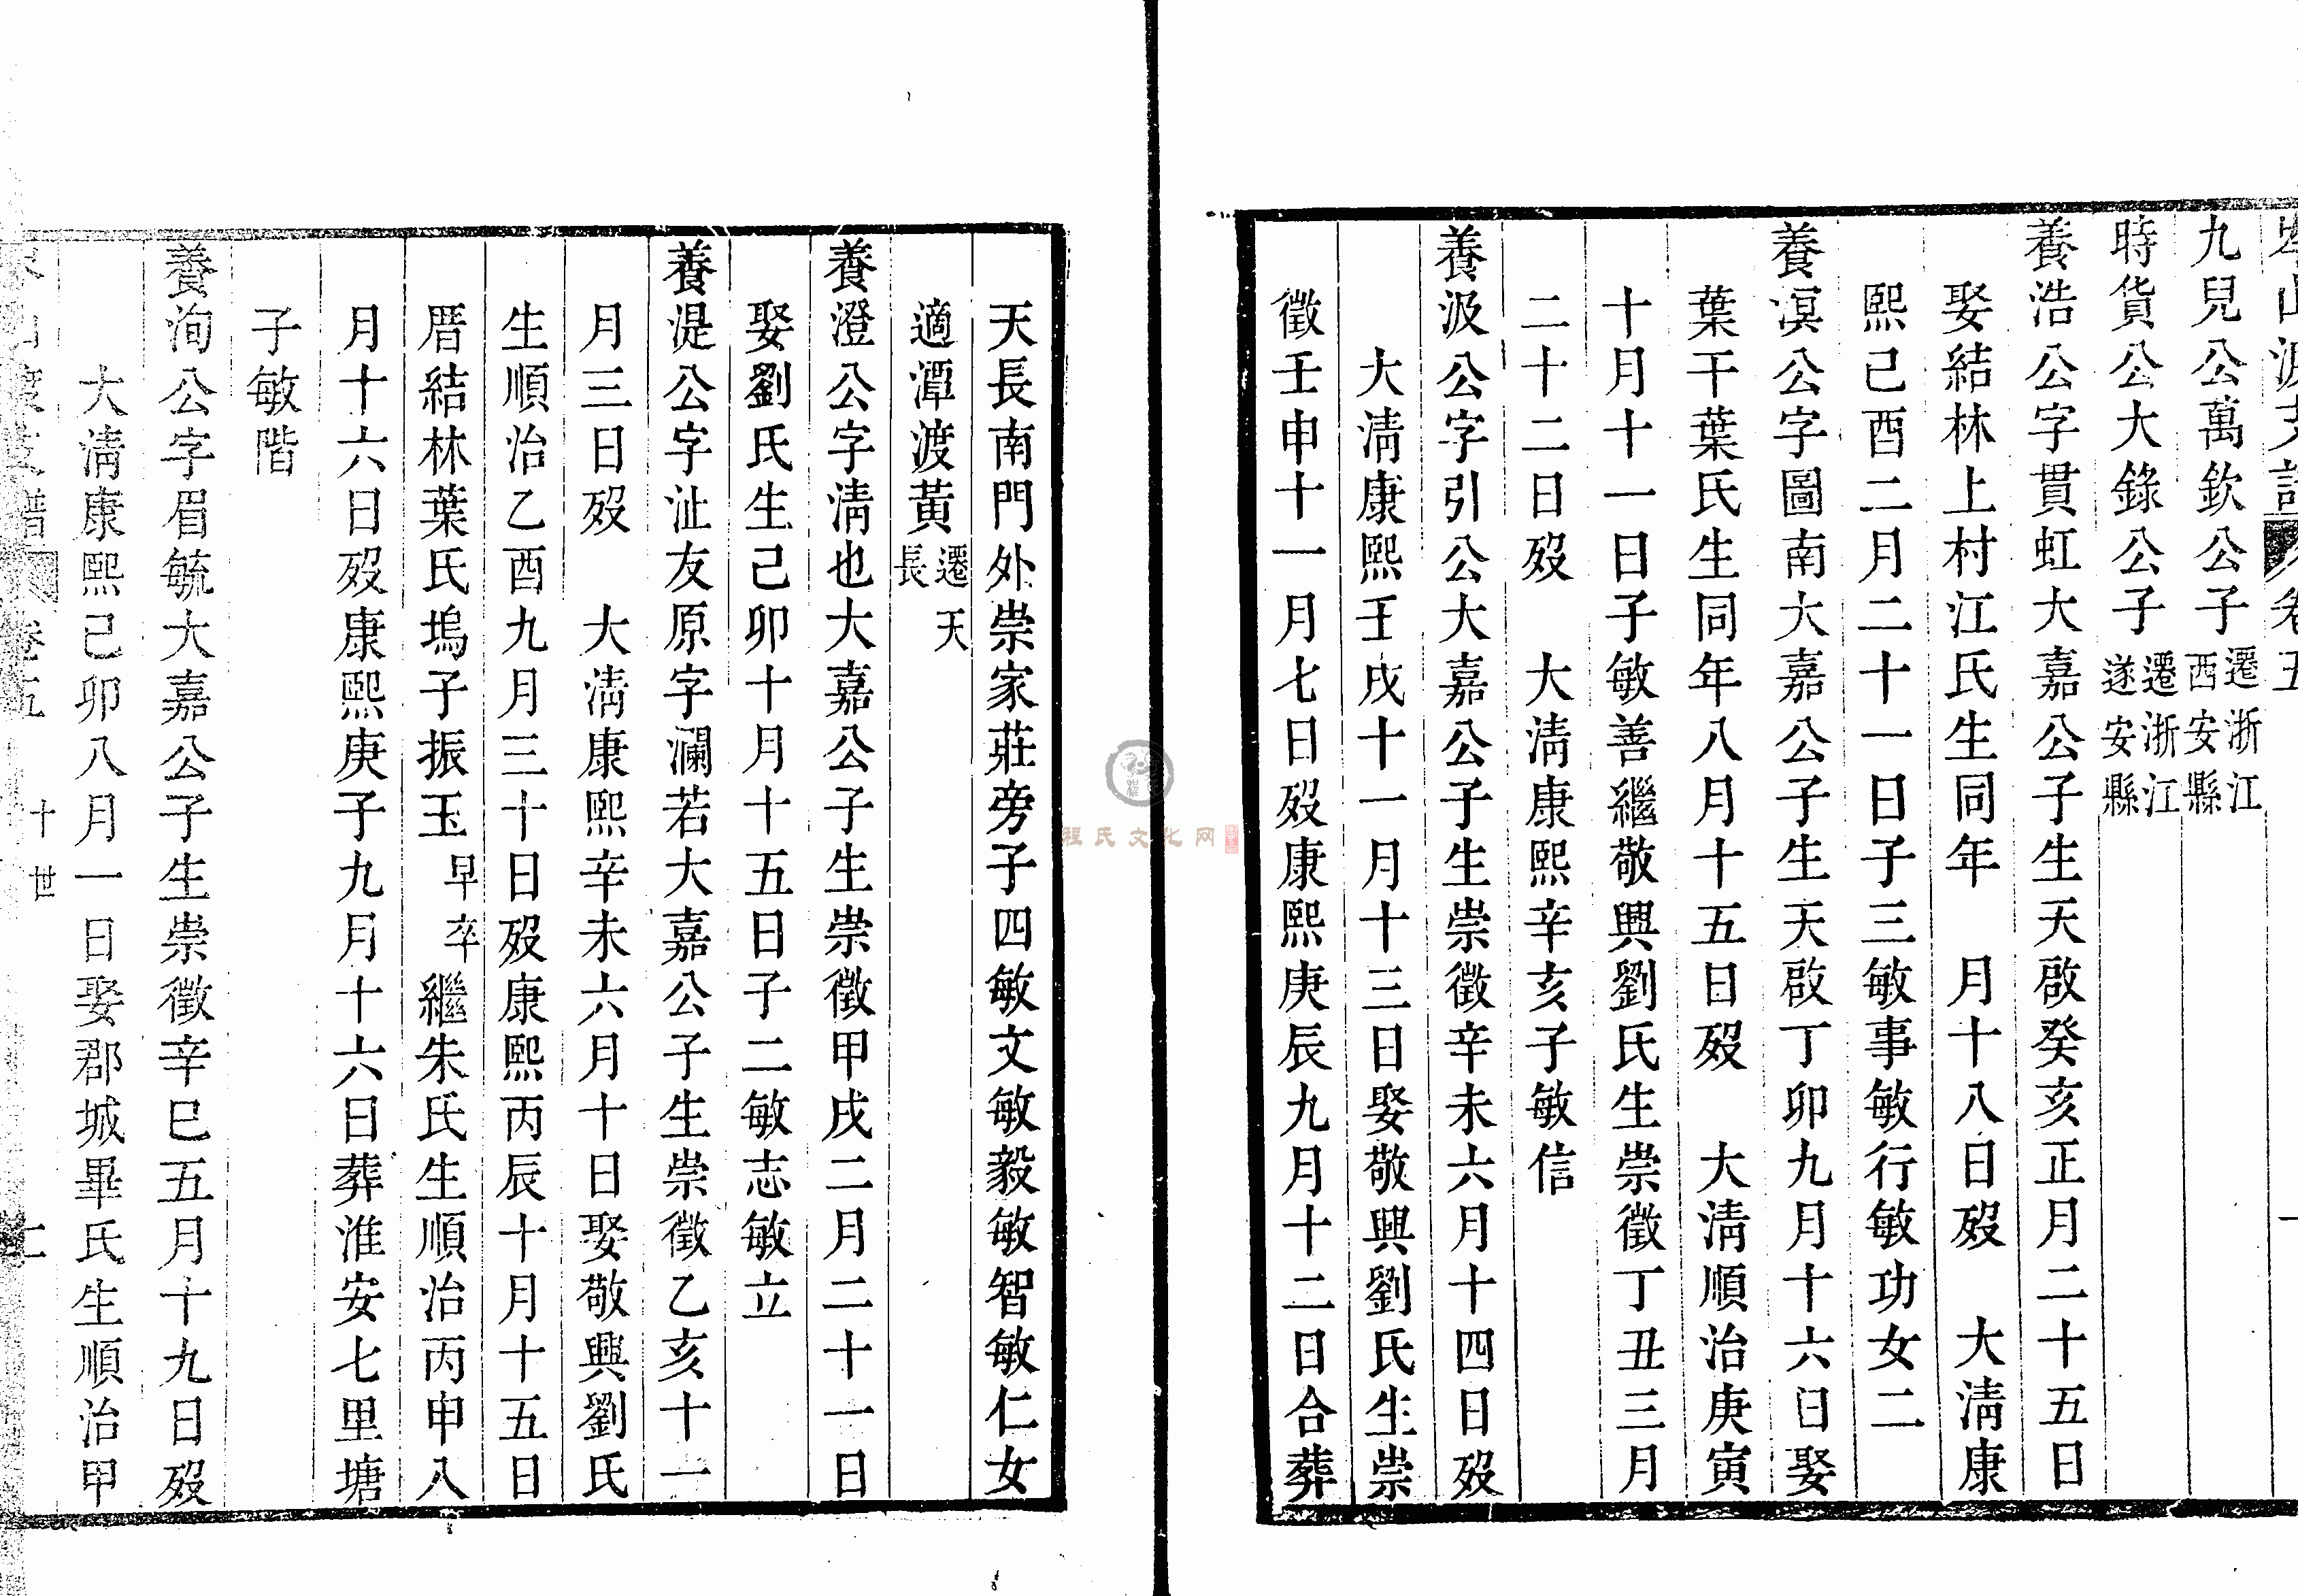 岑山渡支譜 卷五 一
九兒公萬欽公子遷浙江西安縣
時貨公大錄公子遷浙江遂安縣
養浩公字貫虹大嘉公子生天啟癸亥正月二十五日
娶結林上村江氏生同年 月十八日歿 大清康
熙己酉二月二十一日子三敏事敏行敏功女二
養溟公字圖南大嘉公子生天啟丁卯九月十六日娶
葉干葉氏生同年八月十五日歿 大清順治庚寅
十月十一日子敏善繼敬興劉氏生崇徵丁丑三月
二十二日歿 大清康熙辛亥子敏信
養汲公字引公大嘉公子生崇徵辛未六月十四日歿
大清康熙壬戌十一月十三日娶敬興劉氏生崇
徵壬申十一月七日歿康熙庚辰九月十二日合葬
天長南門外崇家莊旁子四敏文敏毅敏智敏仁女
適潭渡黃遷天長
養澄公字清也大嘉公子生崇徵甲戌二月二十一日
娶劉氏生己卯十月十五日子二敏志敏立
養湜公字沚友原字瀾若大嘉公子生崇徵乙亥十一
月三日歿 大清康熙辛未六月十日娶敬興劉氏
生順治乙酉九月三十日歿康熙丙辰十月十五日
厝結林葉氏塢子振玉早卒繼朱氏生順治丙申八
月十六日歿康熙庚子九月十六日葬淮安七里塘
子敏階
養洵公字眉毓大嘉公子生崇徵辛巳五月十九日歿
大清康熙己卯八月一日娶郡城畢氏生順治甲
渡支譜 卷五 十世 二
程氏文化网